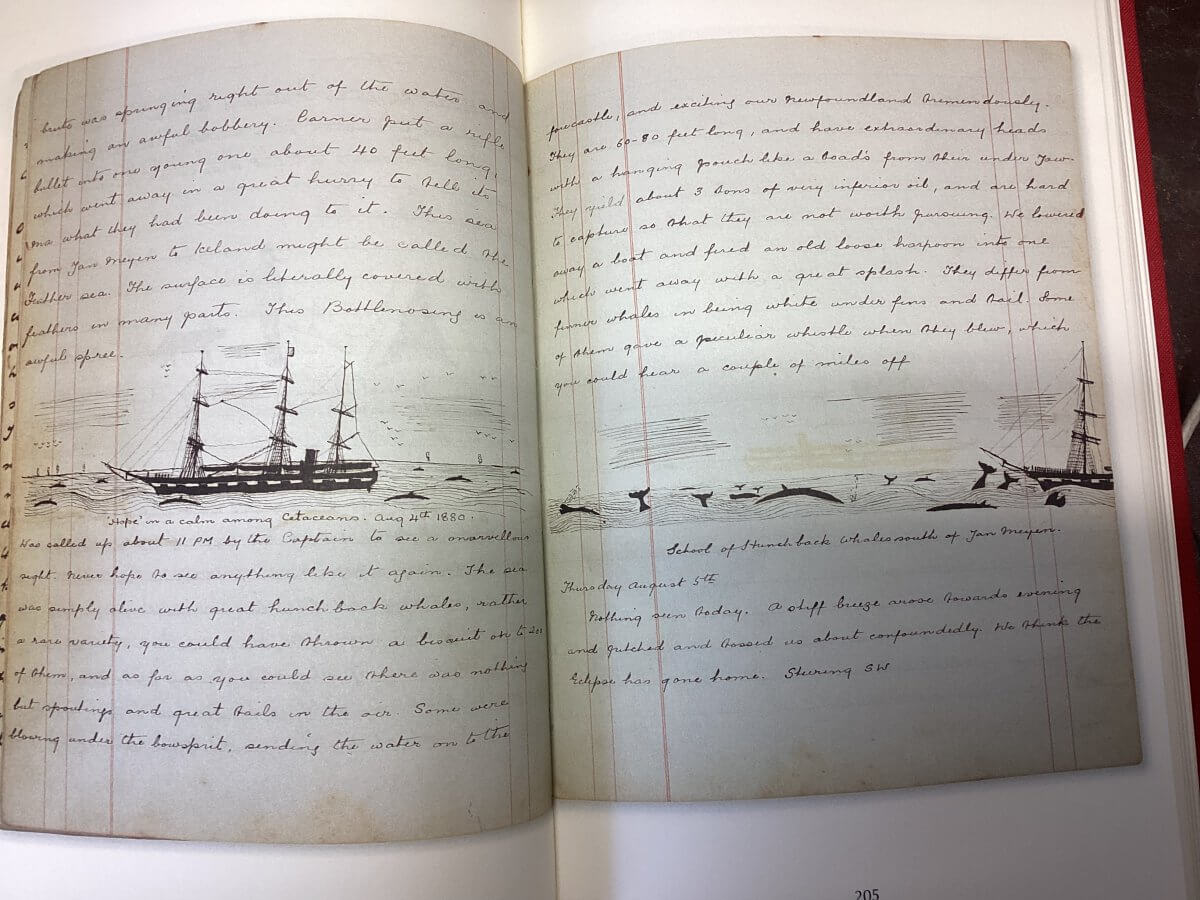 brute was springing right out of the water and
making an awful bobbery. Carner put a rifle
bullet into one young one about 40 feet long,
which went away in a great hurry to tell its
ma what they had been doing to it. This sea
from Jan Meyen to Iceland might be called the
Feather sea. The surface is literally covered with
feathers in many parts. This Bottlenosing is an
awful spree.
'Hope' in a calm among Cetaceans. Aug 4th 1880.
Was called up about 11 PM by the Captain to see a marvellous
sight. Never hope to see anything like it again. The sea
was simply alive with great hunchback whales, rather
a rare variety, you could have thrown a bisquit on to 200
of them, and as far as you could see there was nothing
but spoutings and great tails in the air. Some were
blowing under the bowsprit, sending the water on to the
forecastle, and exciting our Newfoundland tremendously.
They are 60-80 feet long, and have extraordinary heads
with a hanging pouch like a toad's from their under jaw.
They yield about 3 tons of very inferior oil, and are hard
to capture so that they are not worth pursuing. We lowered
away a boat and fired an old loose harpoon into one
which went away with a great splash. They differ from
finner whales in being white under fins and tail. Some
of them gave a peculiar whistle when they blew, which
you could hear a couple of miles off
School of Hunchback whales south of Jan Meyen.
Thursday August 5th
Nothing seen today. A stiff breeze arose towards evening
and pitched and tossed us about confoundedly. We think the
Eclipse has gone home. Steering SW
205